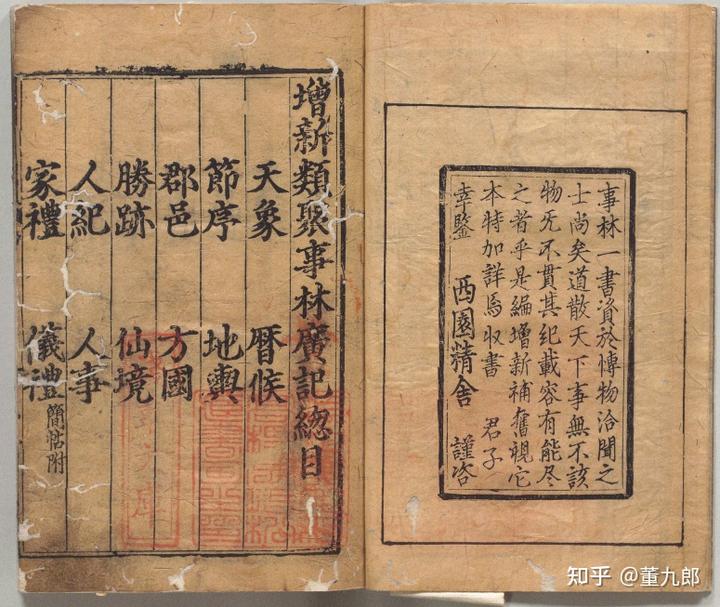 事林一書資於愽物洽聞之
士尚矣道散天下事無不該
物旡不貫其紀載容有能尽
之者乎是編增新補舊視它
本特加詳焉收書 君子
幸鑒 西園精舍 謹咨
增新類聚事林廣記總目
天象 曆候
節序 地輿
郡邑 方國
勝跡 仙境
人紀 人事
家禮 儀禮簡帖附
知乎 @董九郎